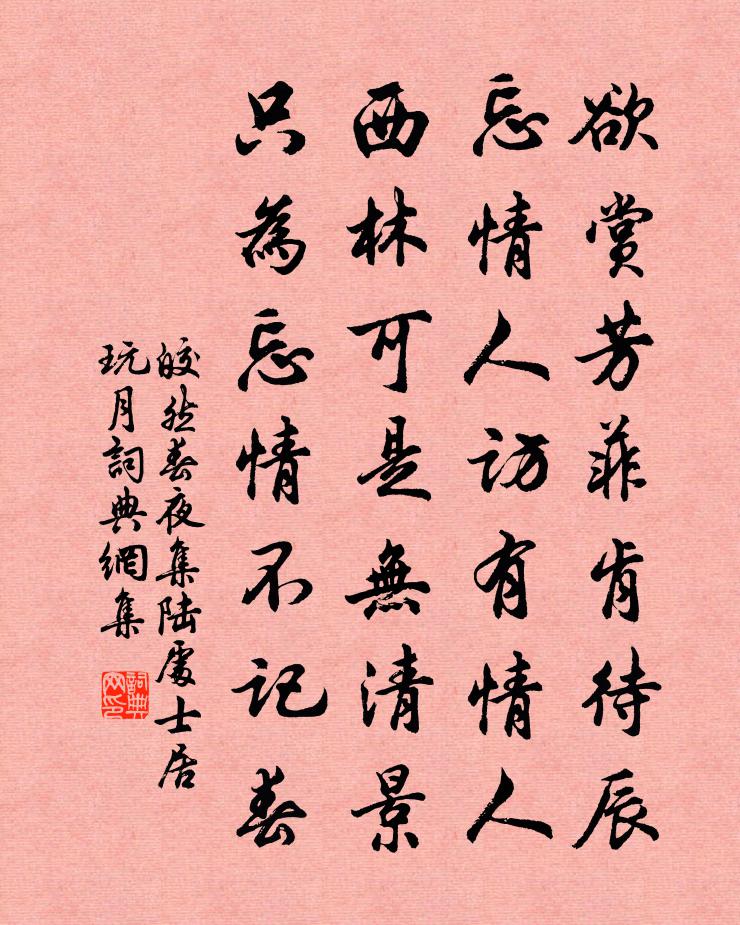 欲賞芳菲肯待辰
忘情人訪有情人
西林可是無清景
只為忘情不記春
皎然春夜集陸處士居
玩月詞典網集
詞典網印